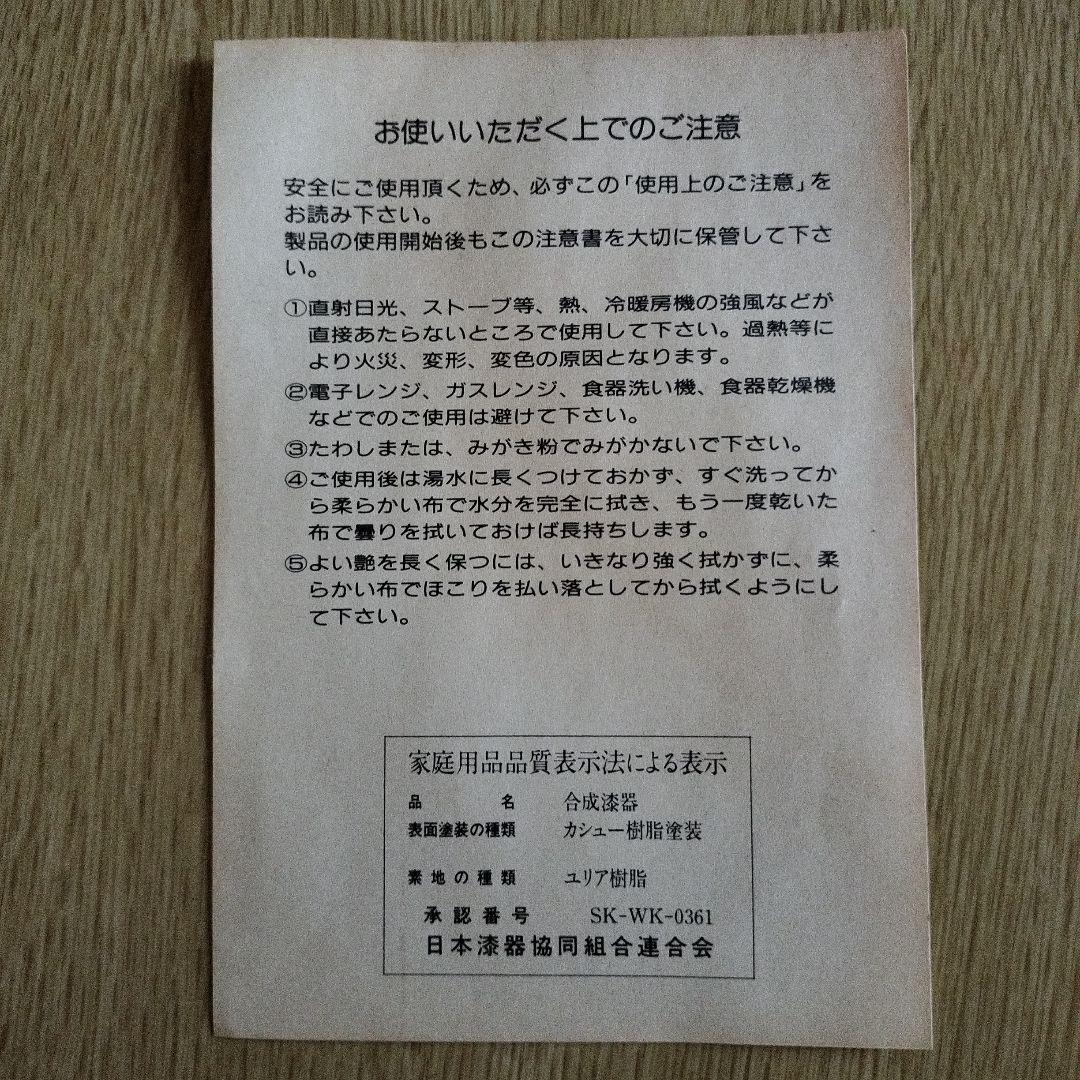 お使いいただく上でのご注意
安全にご使用頂くため、必ずこの「使用上のご注意」を
お読み下さい。
製品の使用開始後もこの注意書を大切に保管して下さ
い。
①直射日光、ストーブ等、熱、冷暖房機の強風などが
直接あたらないところで使用して下さい。過熱等に
より火災、変形、変色の原因となります。
②電子レンジ、ガスレンジ、食器洗い機、食器乾燥機
などでのご使用は避けて下さい。
③たわしまたは、みがき粉でみがかないで下さい。
④ご使用後は湯水に長くつけておかず、すぐ洗ってか
ら柔らかい布で水分を完全に拭き、もう一度乾いた
布で曇りを拭いておけば長持ちします。
⑤よい艶を長く保つには、いきなり強く拭かずに、柔
らかい布でほこりを払い落としてから拭くようにし
て下さい。
家庭用品品質表示法による表示
品名 合成漆器
表面塗装の種類 カシュー樹脂塗装
素地の種類 ユリア樹脂
承認番号 SK-WK-0361
日本漆器協同組合連合会